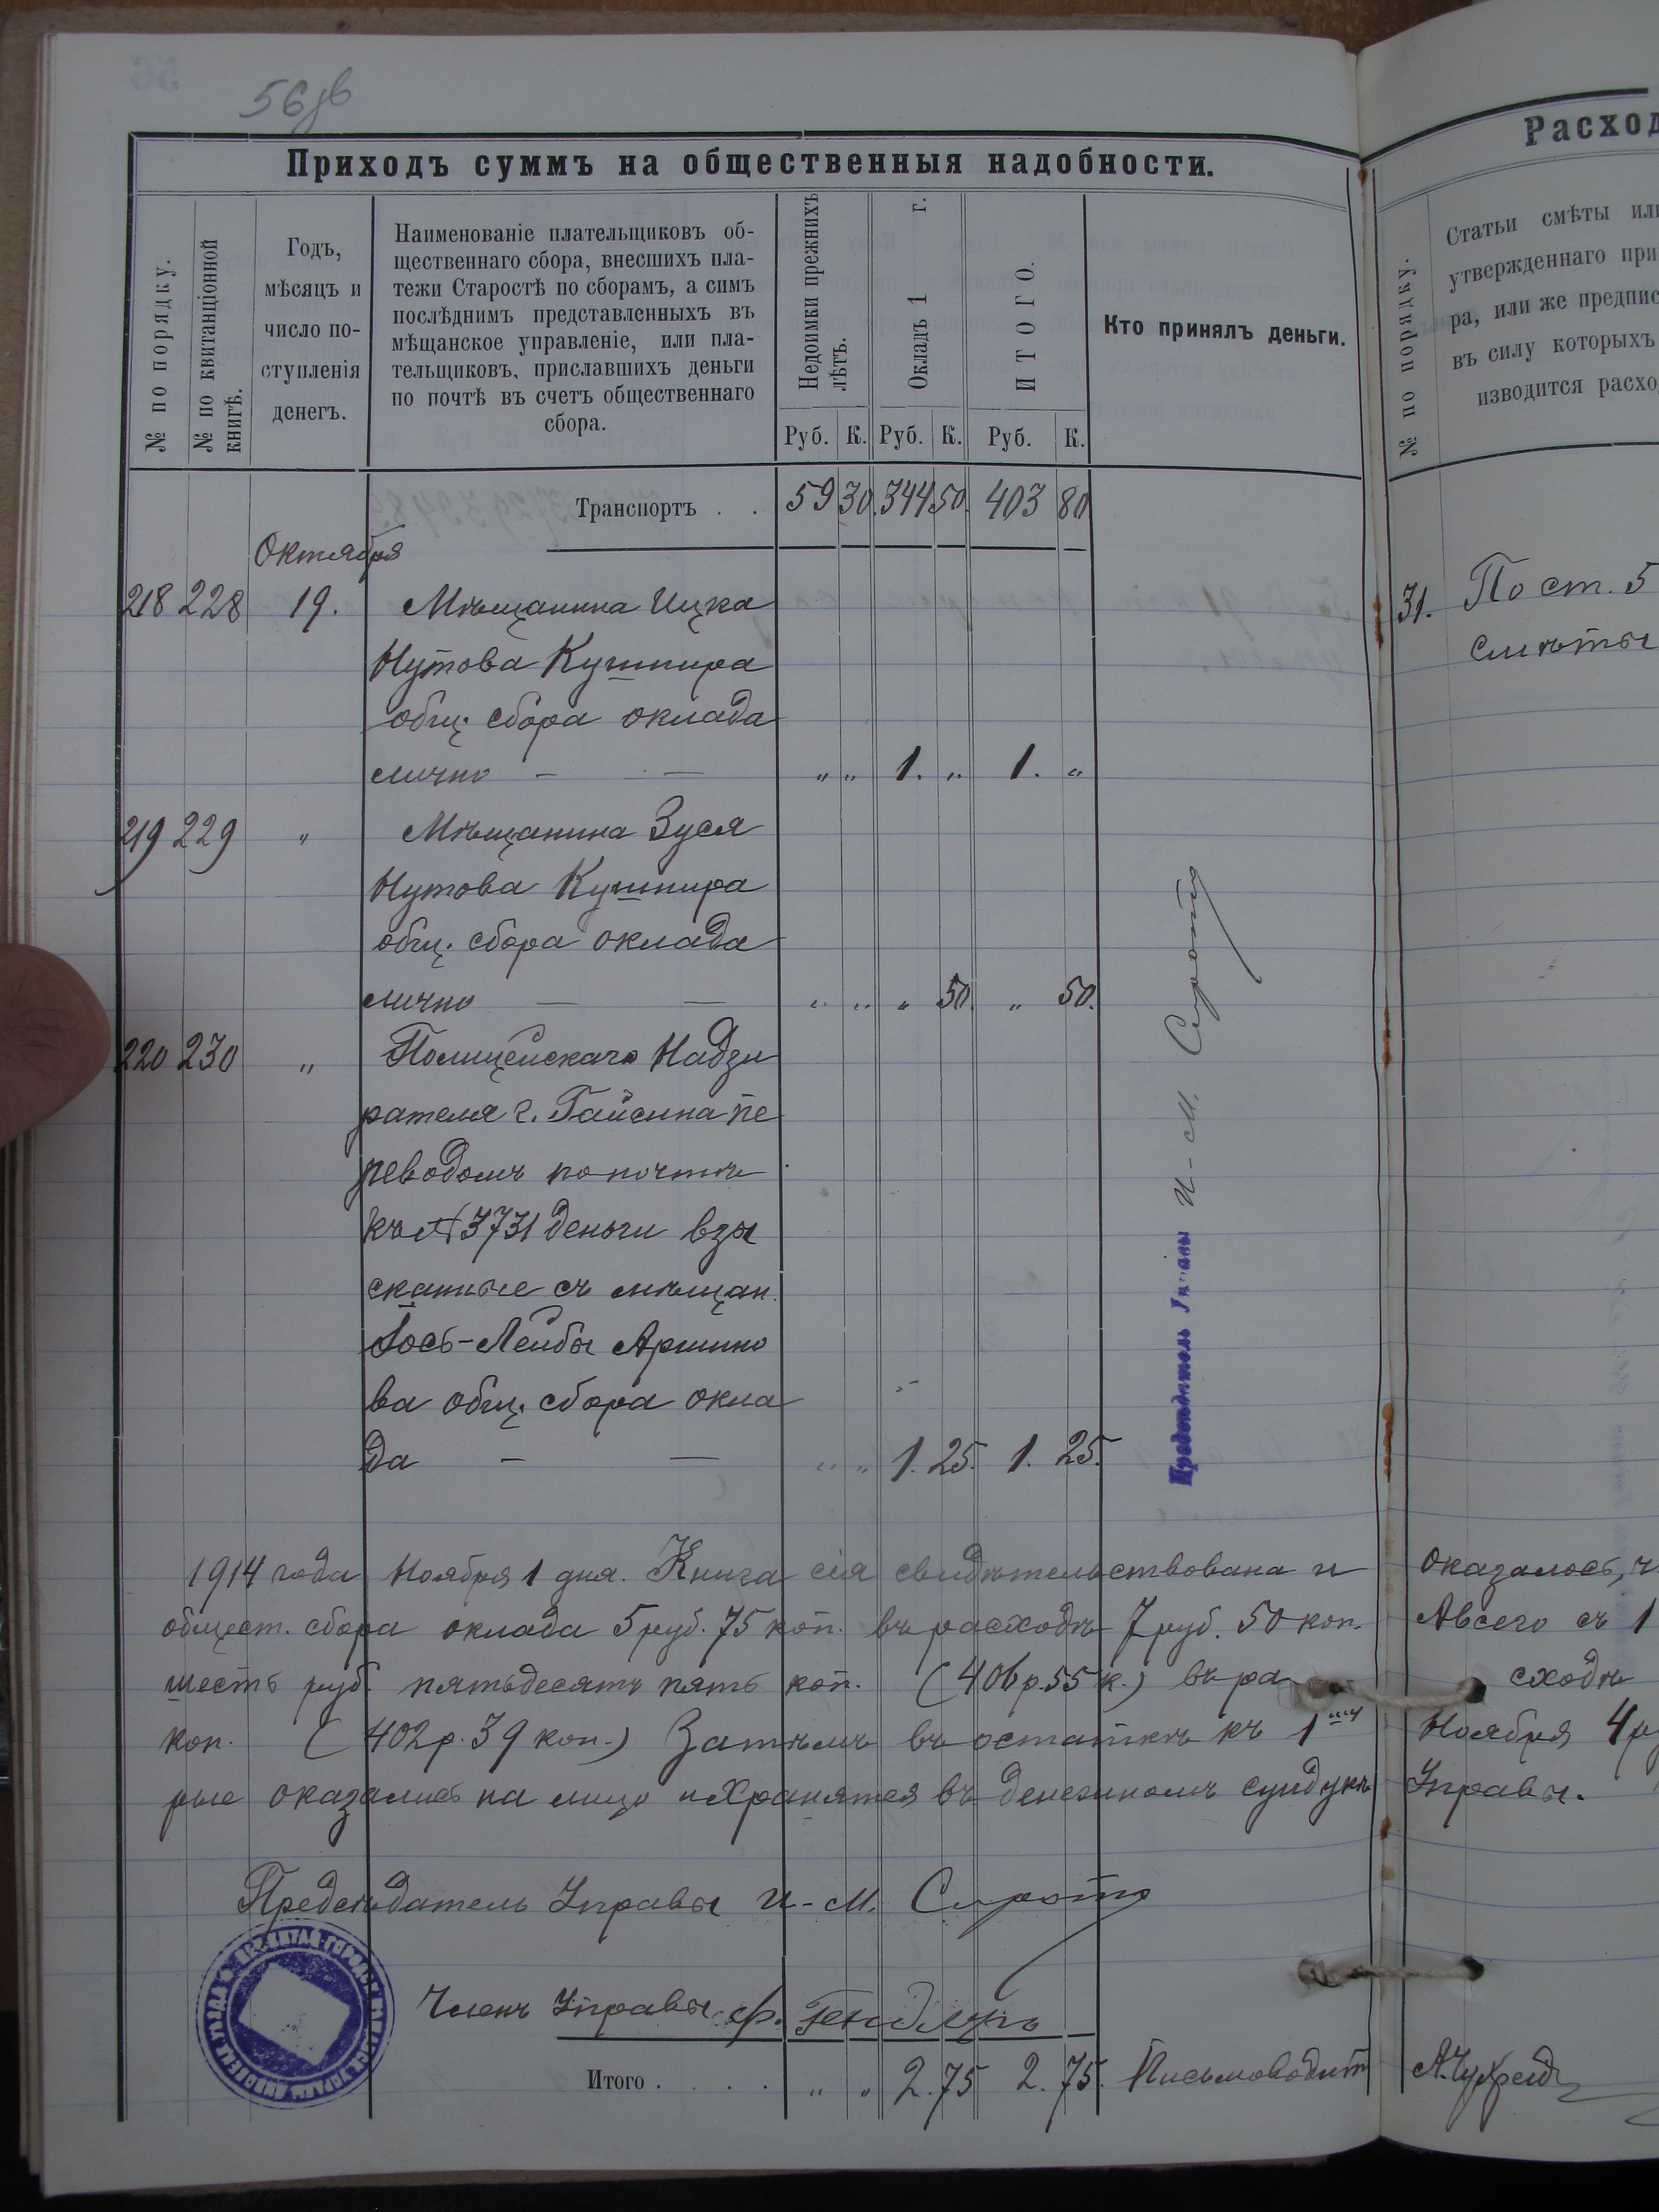 56зв
Приходъ суммъ на общественныя надобности.
№ по порядку.
№ по квитанціонной книгѣ.
Годъ,
мѣсяцъ и
число по-
ступленія
денегъ.
Наименованіе плательщиковъ об-
щественнаго сбора, внесшихъ пла-
тежи Старостѣ по сборамъ, а симъ
послѣднимъ представленныхъ въ
мѣщанское управленіе, или пла-
тельщиковъ, приславшихъ деньги
по почтѣ въ счетъ общественнаго
сбора.
Недоимки прежнихъ лѣтъ.
Окладъ 1 г.
ИТОГО.
Кто принялъ деньги.
Руб. К. Руб. К. Руб. К.
Транспортъ . . 59 30 344 50 403 80
Октября
218 228 19. Мѣщанина Ицка
Нутова Кушнира
общ. сбора оклада
лично — — „ „ 1. „ 1. „
219 229 „ Мѣщанина Зуся
Нутова Кушнира
общ. сбора оклада
лично — — „ „ „ 50. „ 50.
220 230 „ Полицейскаго Надзи
рателя г. Гайсина пе
реводомъ по почтѣ
къ № 3731 деньги взы
сканные съ мѣщан.
Іось-Лейбы Аршино
ва общ. сбора окла
да — — „ „ 1. 25. 1. 25.
Предсѣдатель Управы И-М. Сирота
1914 года Ноября 1 дня. Книга сія свидѣтельствована и
общест. сбора оклада 5 руб. 75 коп. въ расходѣ 7 руб. 50 коп.
шесть руб. пятьдесятъ пять коп. (406 р. 55 к.) въ ра
коп. (402 р. 39 коп.) Затѣмъ въ остаткѣ къ 1
рые оказались на лицо и хранятся въ денежномъ сундукѣ
Предсѣдатель Управы И-М. Сирота
Членъ Управы Ф. Гендлеръ
Итого . . . . „ „ 2. 75 2. 75. Письмоводит
Расход
№ по порядку.
Статьи смѣты или
утвержденнаго при
ра, или же предпис
въ силу которыхъ
изводится расхо
31. По ст. 5
смѣты
оказалось, ч
А всего съ 1
сходѣ
Ноября 4 р
Управы.